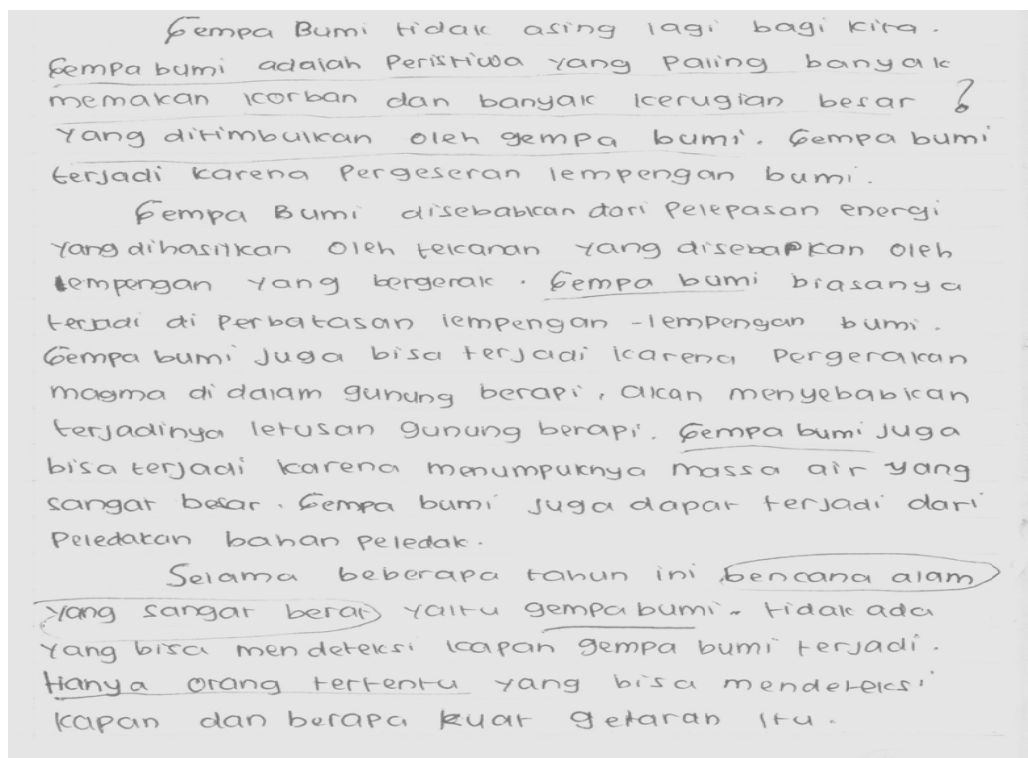 Gempa Bumi tidak asing lagi bagi kita.
Gempa bumi adalah Peristiwa yang Paling banyak
memakan korban dan banyak kerugian besar ?
yang ditimbulkan oleh gempa bumi. Gempa bumi
terjadi karena Pergeseran lempengan bumi.
Gempa Bumi disebabkan dari Pelepasan energi
yang dihasilkan oleh tekanan yang disebapkan oleh
lempengan yang bergerak. Gempa bumi biasanya
terjadi di Perbatasan lempengan-lempengan bumi.
Gempa bumi Juga bisa terjadi karena Pergerakan
magma di dalam gunung berapi, akan menyebabkan
terjadinya letusan gunung berapi. Gempa bumi Juga
bisa terjadi karena menumpuknya massa air yang
sangat besar. Gempa bumi Juga dapat terjadi dari
Peledakan bahan Peledak.
Selama beberapa tahun ini bencana alam
yang sangat berat yaitu gempa bumi. tidak ada
yang bisa mendeteksi kapan gempa bumi terjadi.
Hanya orang tertentu yang bisa mendeteksi
kapan dan berapa kuat getaran itu.